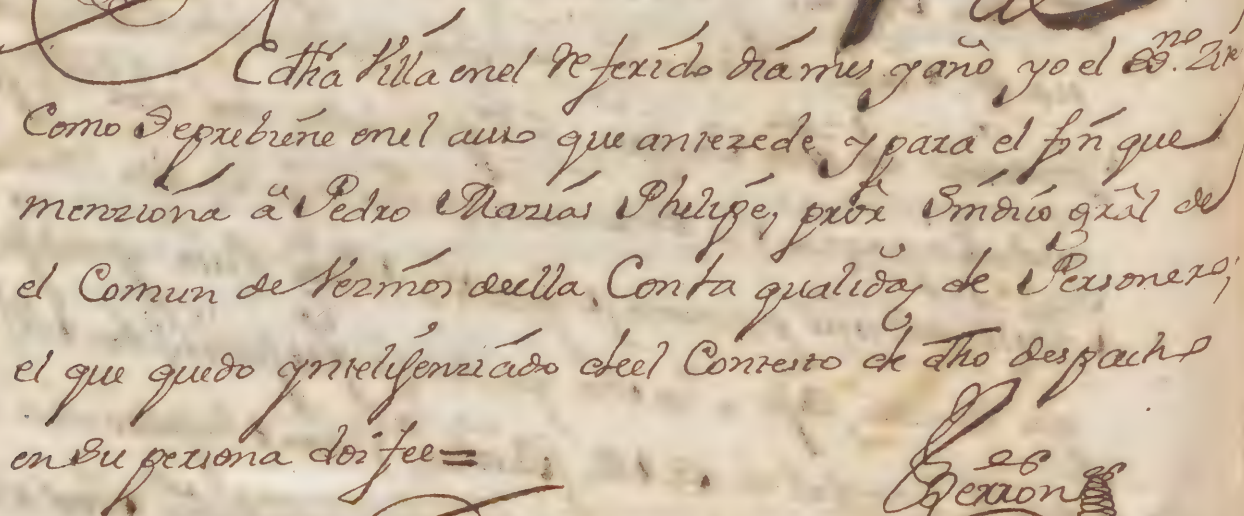 En dha Villa en el Referido dia mes y año yo el essno. Zitè
Como Se prebiene en el auto que antezede y para el fin que
menziona â Pedro Mazias Phelipe, pror Sindico gral de
el Comun de Vezinos de ella, Con la qualidad de Personero,
el que quedo ynteligenziado de el Contesto de dho despacho
en su persona doi fee =